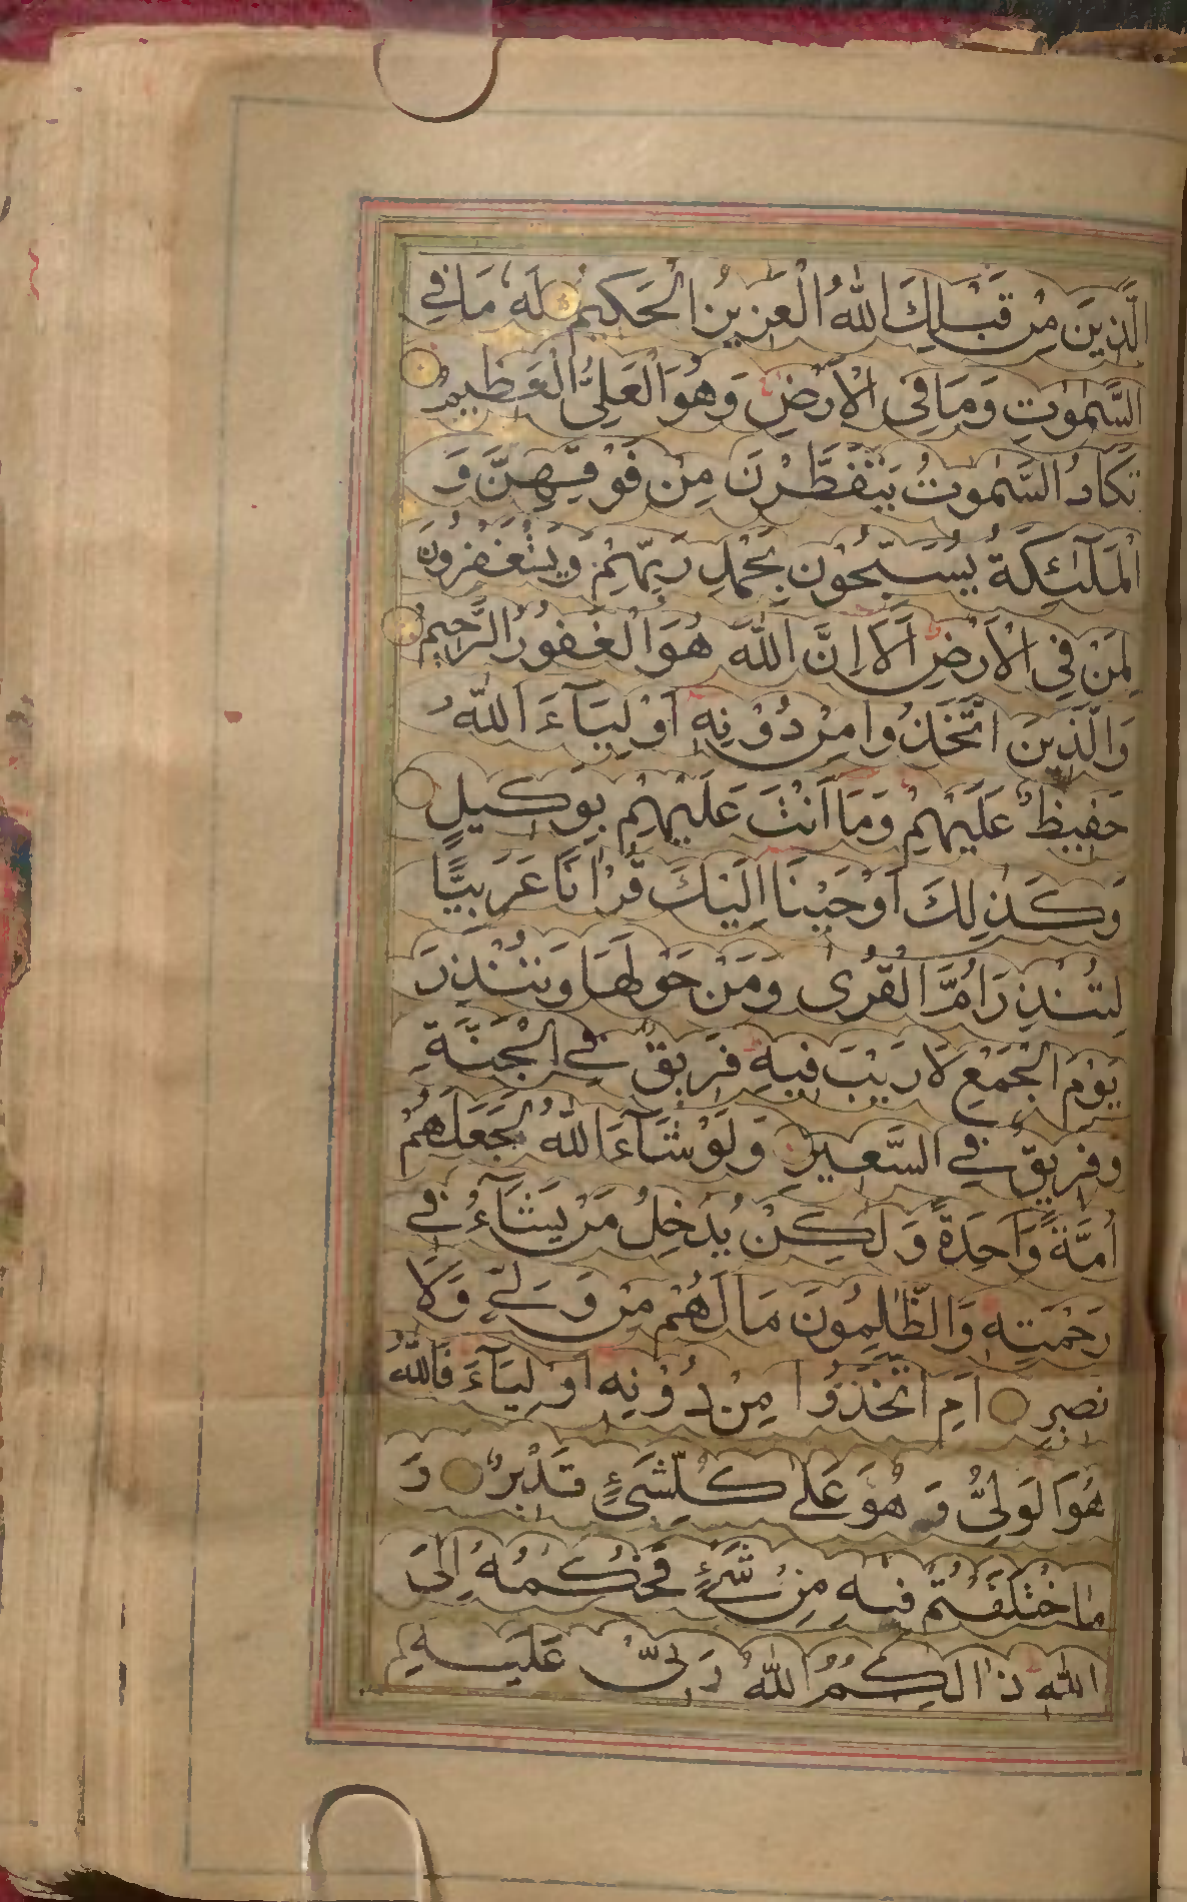 الَّذِينَ مِنْ قَبْلِكَ اللّٰهُ الْعَزِيزُ الْحَكِيمُ لَهٗ مَا فِي
السَّمٰوٰتِ وَمَا فِي الْاَرْضِ وَهُوَ الْعَلِيُّ الْعَظِيمُ
تَكَادُ السَّمٰوٰتُ يَتَفَطَّرْنَ مِنْ فَوْقِهِنَّ وَ
الْمَلٰٓئِكَةُ يُسَبِّحُونَ بِحَمْدِ رَبِّهِمْ وَيَسْتَغْفِرُونَ
لِمَنْ فِي الْاَرْضِ اَلَا اِنَّ اللّٰهَ هُوَ الْغَفُورُ الرَّحِيمُ
وَالَّذِينَ اتَّخَذُوا مِنْ دُوْنِهٖ اَوْلِيَآءَ اللّٰهُ
حَفِيظٌ عَلَيْهِمْ وَمَا اَنْتَ عَلَيْهِمْ بِوَكِيلٍ
وَكَذٰلِكَ اَوْحَيْنَا اِلَيْكَ قُرْاٰنًا عَرَبِيًّا
لِتُنْذِرَ اُمَّ الْقُرٰى وَمَنْ حَوْلَهَا وَتُنْذِرَ
يَوْمَ الْجَمْعِ لَا رَيْبَ فِيهِ فَرِيقٌ فِي الْجَنَّةِ
وَفَرِيقٌ فِي السَّعِيرِ وَلَوْ شَآءَ اللّٰهُ لَجَعَلَهُمْ
اُمَّةً وَاحِدَةً وَلٰكِنْ يُدْخِلُ مَنْ يَشَآءُ فِي
رَحْمَتِهٖ وَالظّٰلِمُونَ مَا لَهُمْ مِنْ وَلِيٍّ وَلَا
نَصِيرٍ اَمِ اتَّخَذُوا مِنْ دُوْنِهٖ اَوْلِيَآءَ فَاللّٰهُ
هُوَ الْوَلِيُّ وَهُوَ عَلٰى كُلِّ شَيْءٍ قَدِيرٌ وَ
مَا اخْتَلَفْتُمْ فِيهِ مِنْ شَيْءٍ فَحُكْمُهٗ اِلَى
اللّٰهِ ذَالِكُمُ اللّٰهُ رَبِّي عَلَيْهِ